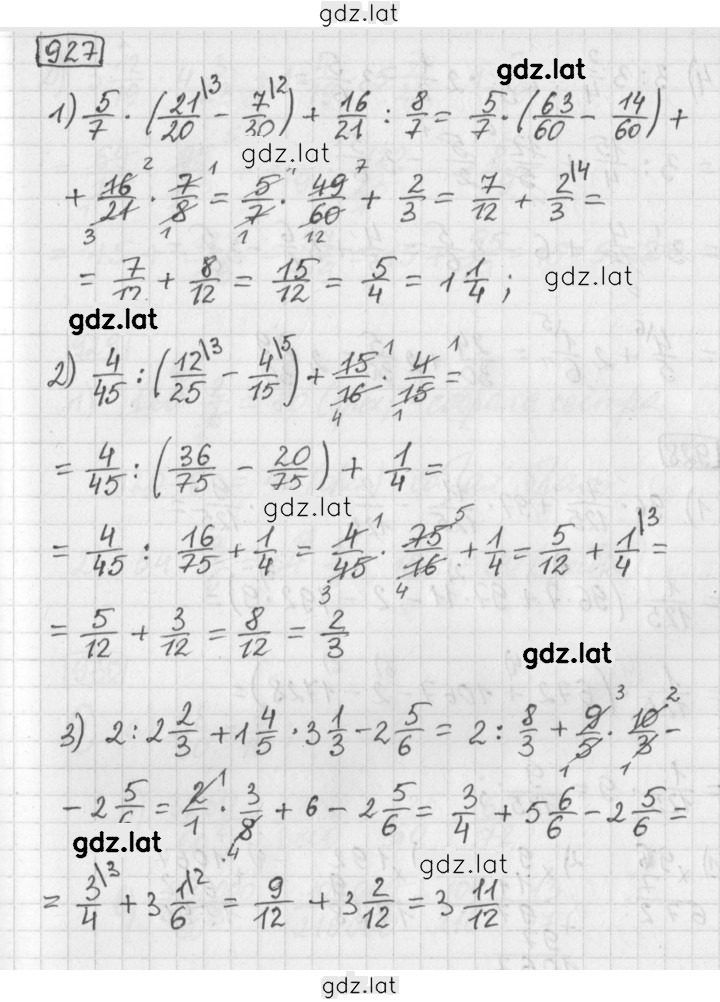 gdz.lat
927
gdz.lat
1) 5/7 · (21/20 \3 − 7/30 \2) + 16/21 : 8/7 = 5/7 · (63/60 − 14/60) +
gdz.lat
+ 16/21 · 7/8 = 5/7 · 49/60 + 2/3 = 7/12 + 2/3 \4 =
= 7/12 + 8/12 = 15/12 = 5/4 = 1 1/4 ;
gdz.lat
gdz.lat
2) 4/45 : (12/25 \3 − 4/15 \5) + 15/16 · 4/15 =
= 4/45 : (36/75 − 20/75) + 1/4 =
gdz.lat
= 4/45 : 16/75 + 1/4 = 4/45 · 75/16 + 1/4 = 5/12 + 1/4 \3 =
= 5/12 + 3/12 = 8/12 = 2/3
gdz.lat
3) 2 : 2 2/3 + 1 4/5 · 3 1/3 − 2 5/6 = 2 : 8/3 + 9/5 · 10/3 −
− 2 5/6 = 2/1 · 3/8 + 6 − 2 5/6 = 3/4 + 5 6/6 − 2 5/6 =
gdz.lat
gdz.lat
= 3/4 \3 + 3 1/6 \2 = 9/12 + 3 2/12 = 3 11/12
gdz.lat